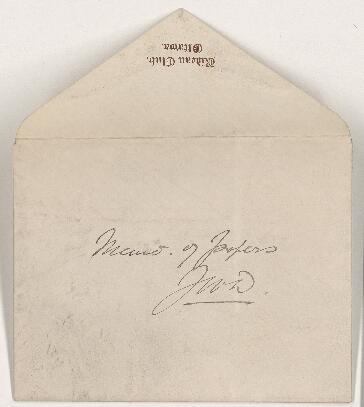 Rideau Club.
Ottawa
Memo. of Papers
JWD.